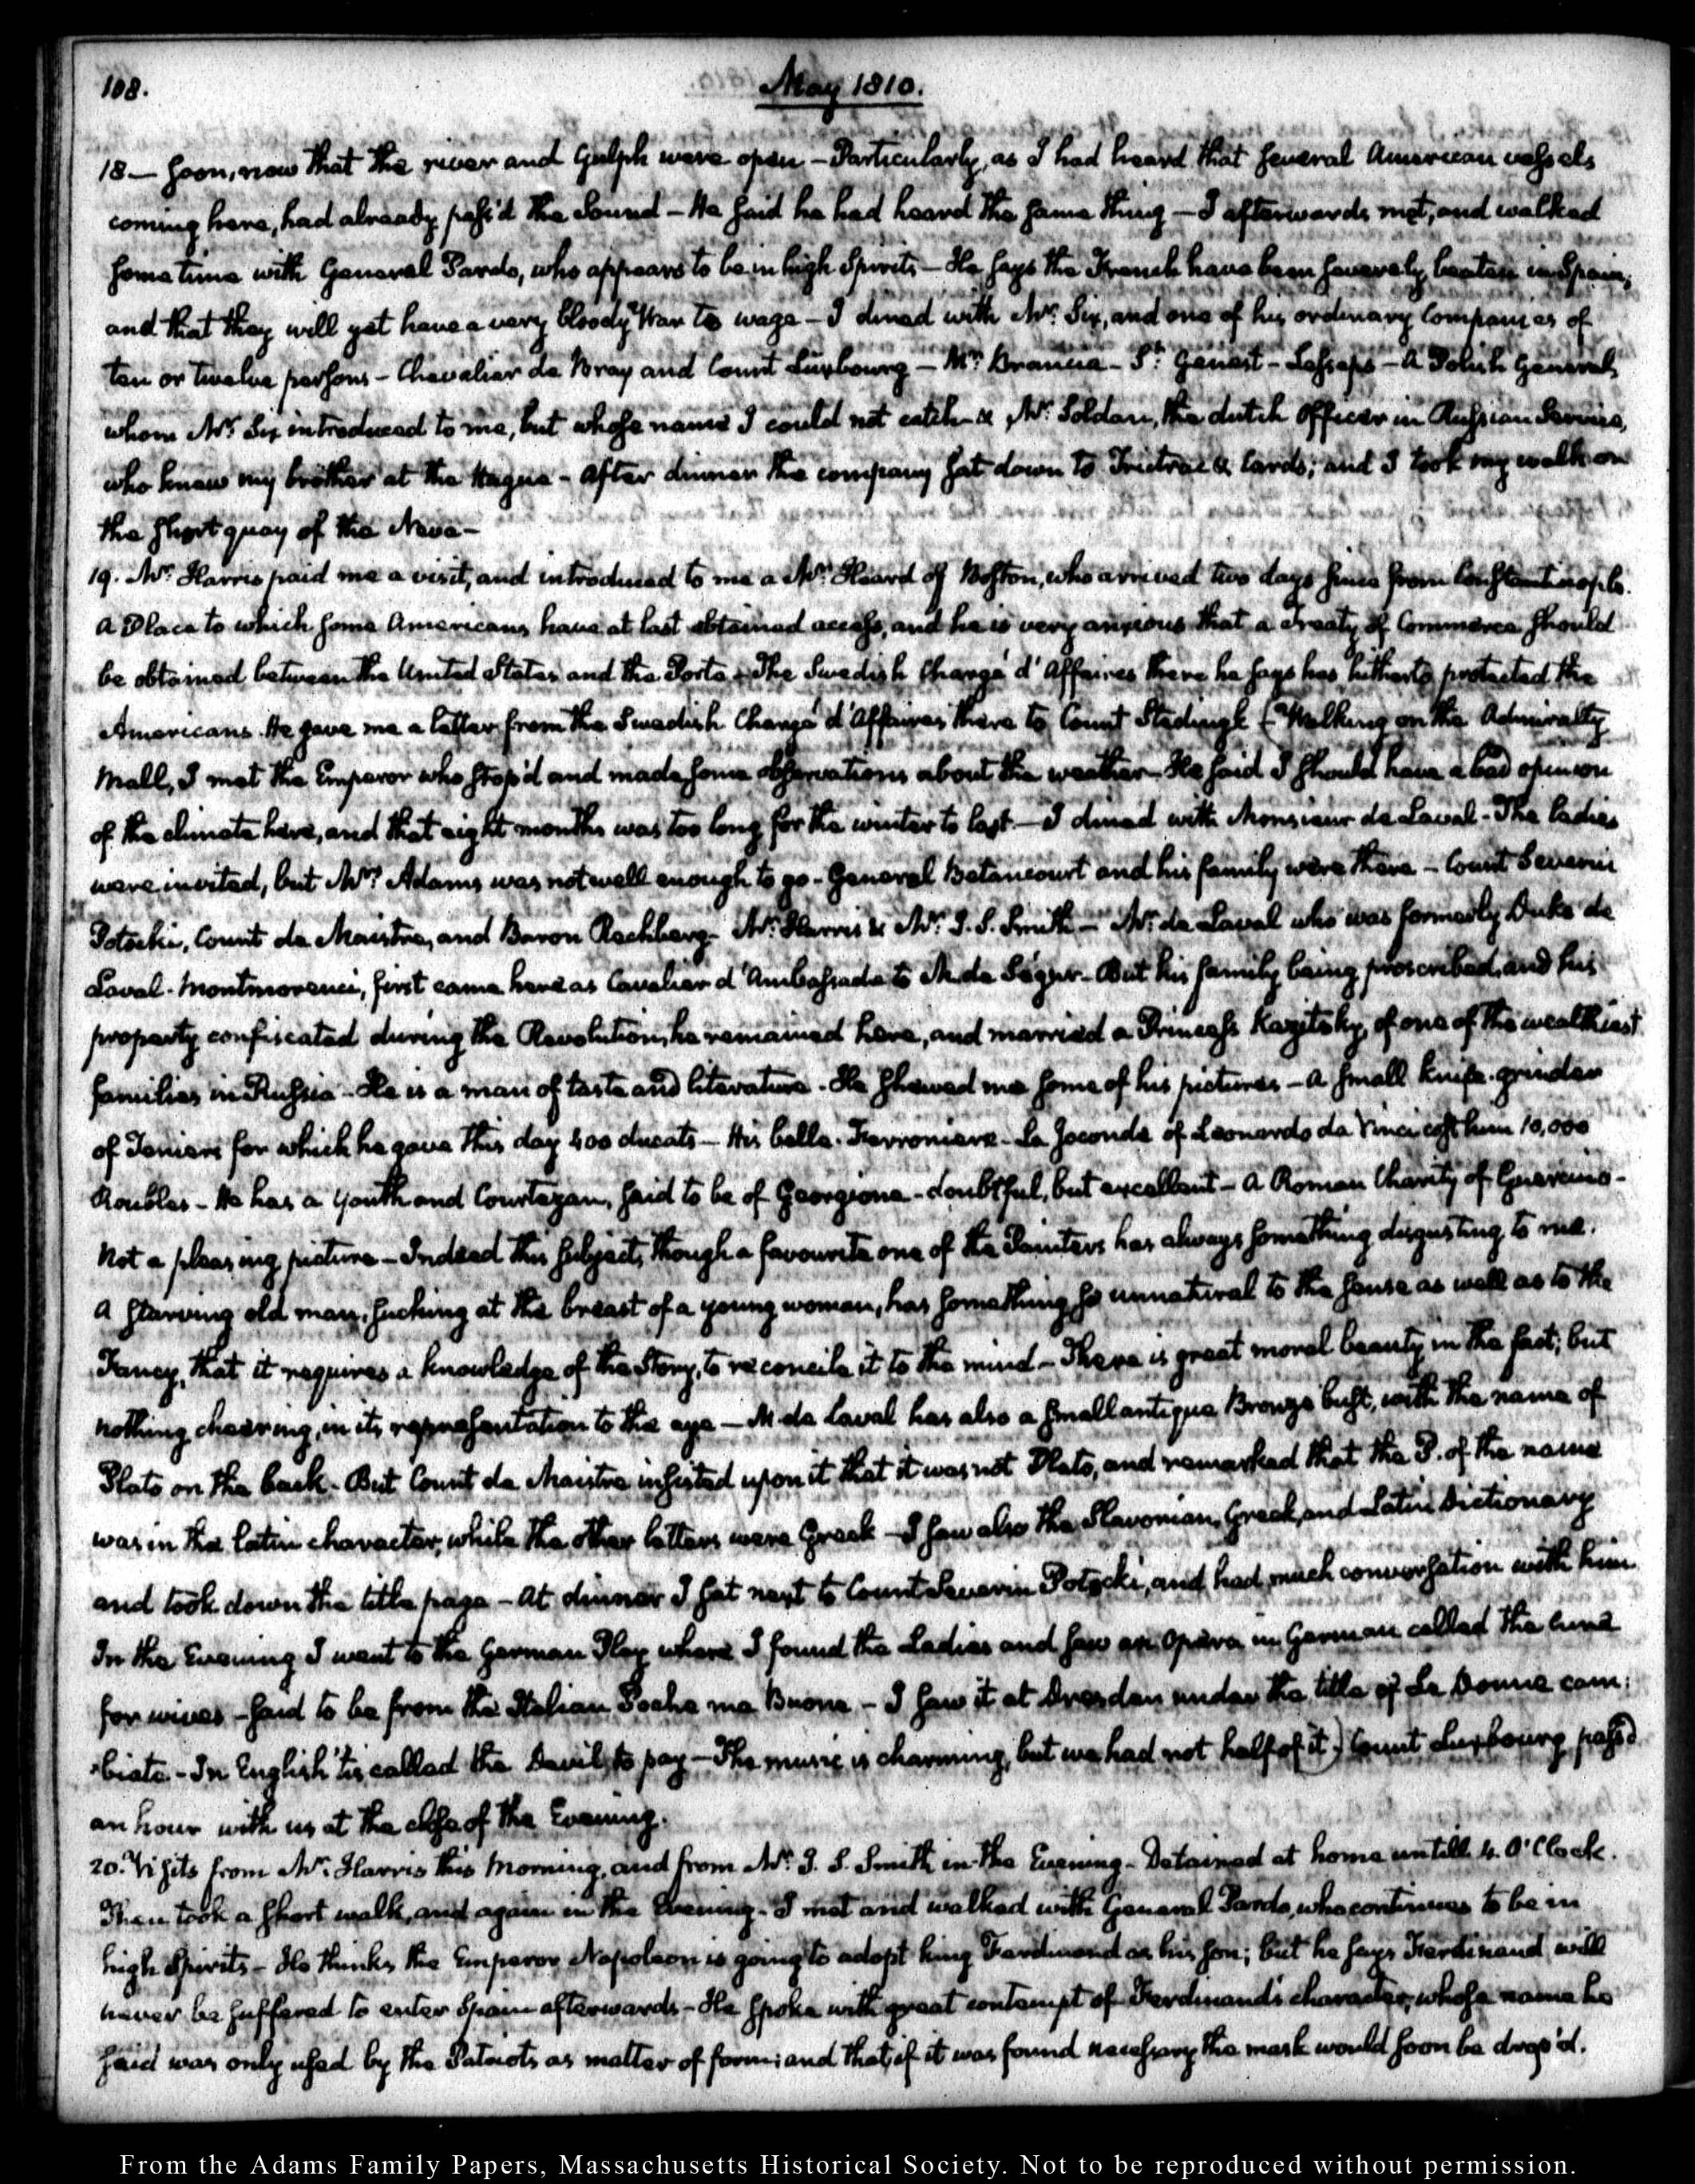 108.
May 1810.
18 — soon, now that the river and Gulph were open — Particularly, as I had heard that several American vessels
coming here, had already pass'd the Sound — He said he had heard the same thing — I afterwards met, and walked
some time with General Pardo, who appears to be in high Spirits — He says the French have been severely beaten in Spain;
and that they will yet have a very bloody War to wage — I dined with Mr. Six, and one of his ordinary Companies of
ten or twelve persons — Chevalier de Bray and Count Luxbourg — Mr. Brancia — St. Genest — Lesseps — A Polish General,
whom Mr. Six introduced to me, but whose name I could not catch — & Mr. Soldan, the dutch Officer in Russian Service,
who knew my brother at the Hague — After dinner the company sat down to Trictrac & Cards; and I took my walk on
the short quay of the Neva —
19. Mr. Harris paid me a visit, and introduced to me a Mr. Heard of Boston, who arrived two days since from Constantinople.
A Place to which some Americans have at last obtained access, and he is very anxious that a Treaty of Commerce should
be obtained between the United States and the Porte. The Swedish Chargé d'Affaires there he says has hitherto protected the
Americans. He gave me a letter from the Swedish Chargé d'Affaires there to Count Stedingk (Walking on the Admiralty
Mall, I met the Emperor who stop'd and made some observations about the weather — He said I should have a bad opinion
of the climate here, and that eight months was too long for the winter to last. — I dined with Monsieur de Laval — The ladies
were invited, but Mrs. Adams was not well enough to go — General Betancourt and his family were there — Count Severin
Potocki, Count de Maistre, and Baron Rechberg — Mr. Harris & Mr. J. S. Smith — Mr. de Laval who was formerly Duke de
Laval-Montmorenci, first came here as Cavalier d'Ambassade to M. de Ségur — But his family being proscribed, and his
property confiscated during the Revolution, he remained here, and married a Princess Kazitsky, of one of the wealthiest
families in Russia — He is a man of taste and literature. He shewed me some of his pictures — A small knife-grinder
of Teniers for which he gave this day 400 ducats — His belle-Ferroniere — La Joconde of Leonardo da Vinci cost him 10,000
Roubles — He has a Youth and Courtezan, said to be of Georgione — doubtful, but excellent — A Roman Charity of Guercino —
Not a pleasing picture — Indeed this subject, though a favourite one of the Painters has always something disgusting to me.
A starving old man, sucking at the breast of a young woman, has something so unnatural to the sense as well as to the
Fancy, that it requires a knowledge of the Story, to reconcile it to the mind — There is great moral beauty in the fact; but
nothing cheering, in its representation to the eye — M. de Laval has also a small antique Bronze bust, with the name of
Plato on the back — But Count de Maistre insisted upon it that it was not Plato, and remarked that the P. of the name
was in the Latin character, while the other letters were Greek — I saw also the Slavonian, Greek, and Latin Dictionary
and took down the title page — At dinner I sat next to Count Severin Potocki, and had much conversation with him.
In the Evening I went to the German Play where I found the Ladies and saw an Opera in German called the cure
for wives — said to be from the Italian Poche ma Buone — I saw it at Dresden under the title of Le Donne cam:
:biate — In English 'tis called the Devil to pay — The music is charming, but we had not half of it) Count Luxbourg pass'd
an hour with us at the close of the Evening.
20. Visits from Mr. Harris this Morning, and from Mr. J. S. Smith in the Evening — Detained at home untill 4. O'Clock.
Then took a short walk, and again in the Evening — I met and walked with General Pardo, who continues to be in
high Spirits — He thinks the Emperor Napoleon is going to adopt king Ferdinand as his son; but he says Ferdinand will
never be suffered to enter Spain afterwards — He spoke with great contempt of Ferdinand's character, whose name he
said was only used by the Patriots as matter of form; and that, if it was found necessary the mask would soon be drop'd.
From the Adams Family Papers, Massachusetts Historical Society. Not to be reproduced without permission.